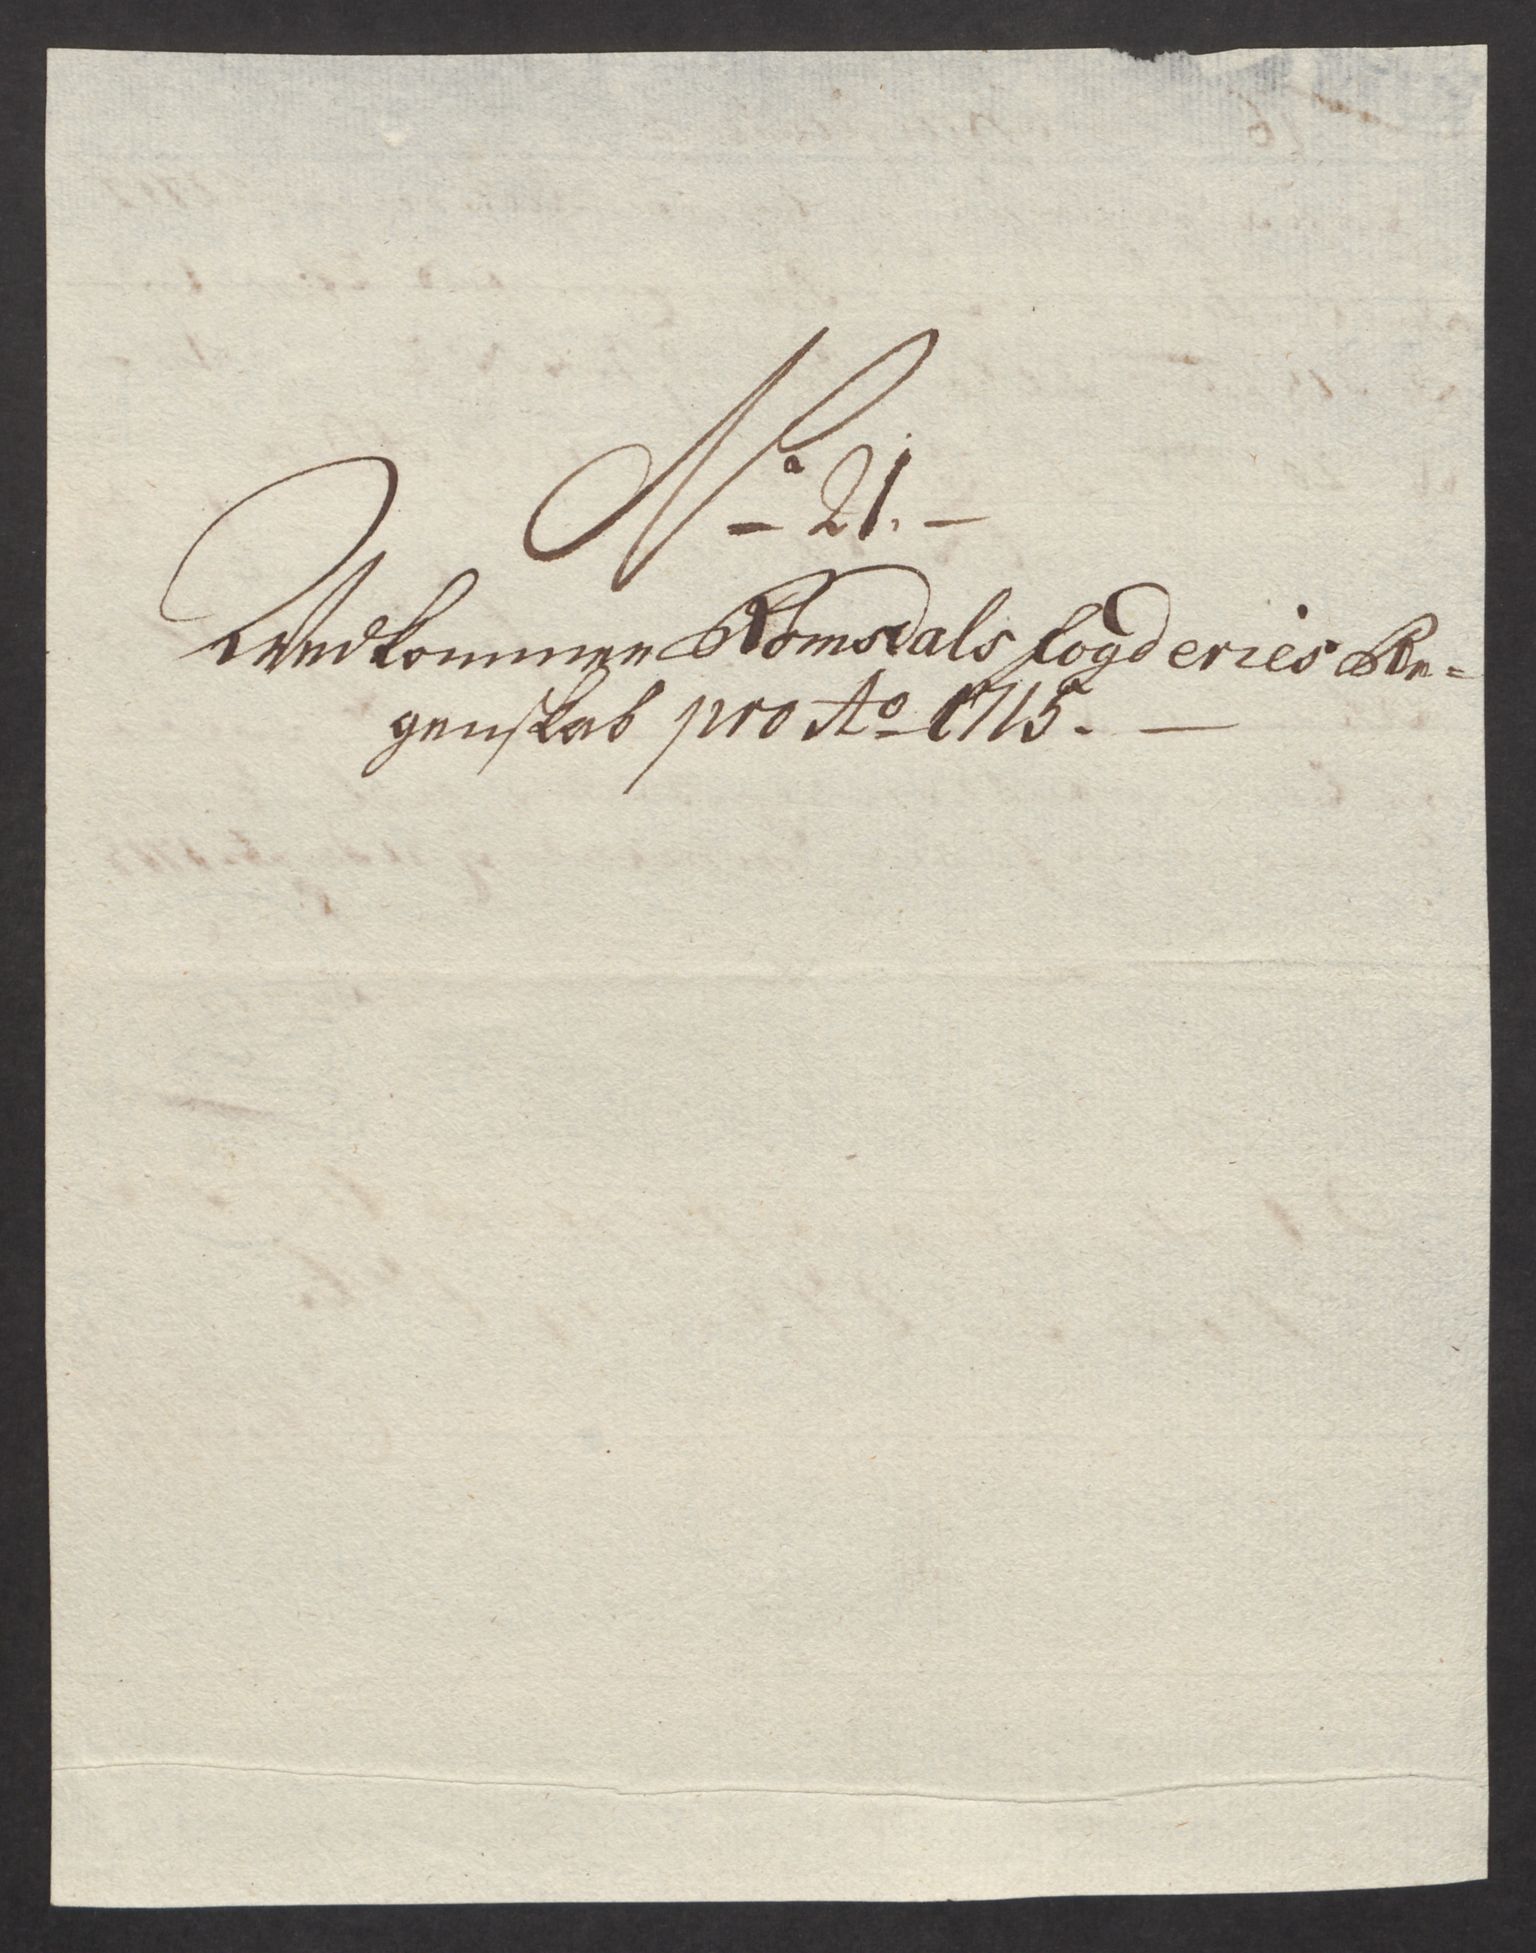 No 21.
Vedkommer Romsdals fogderies Re-
genskab pro Ao 1715.